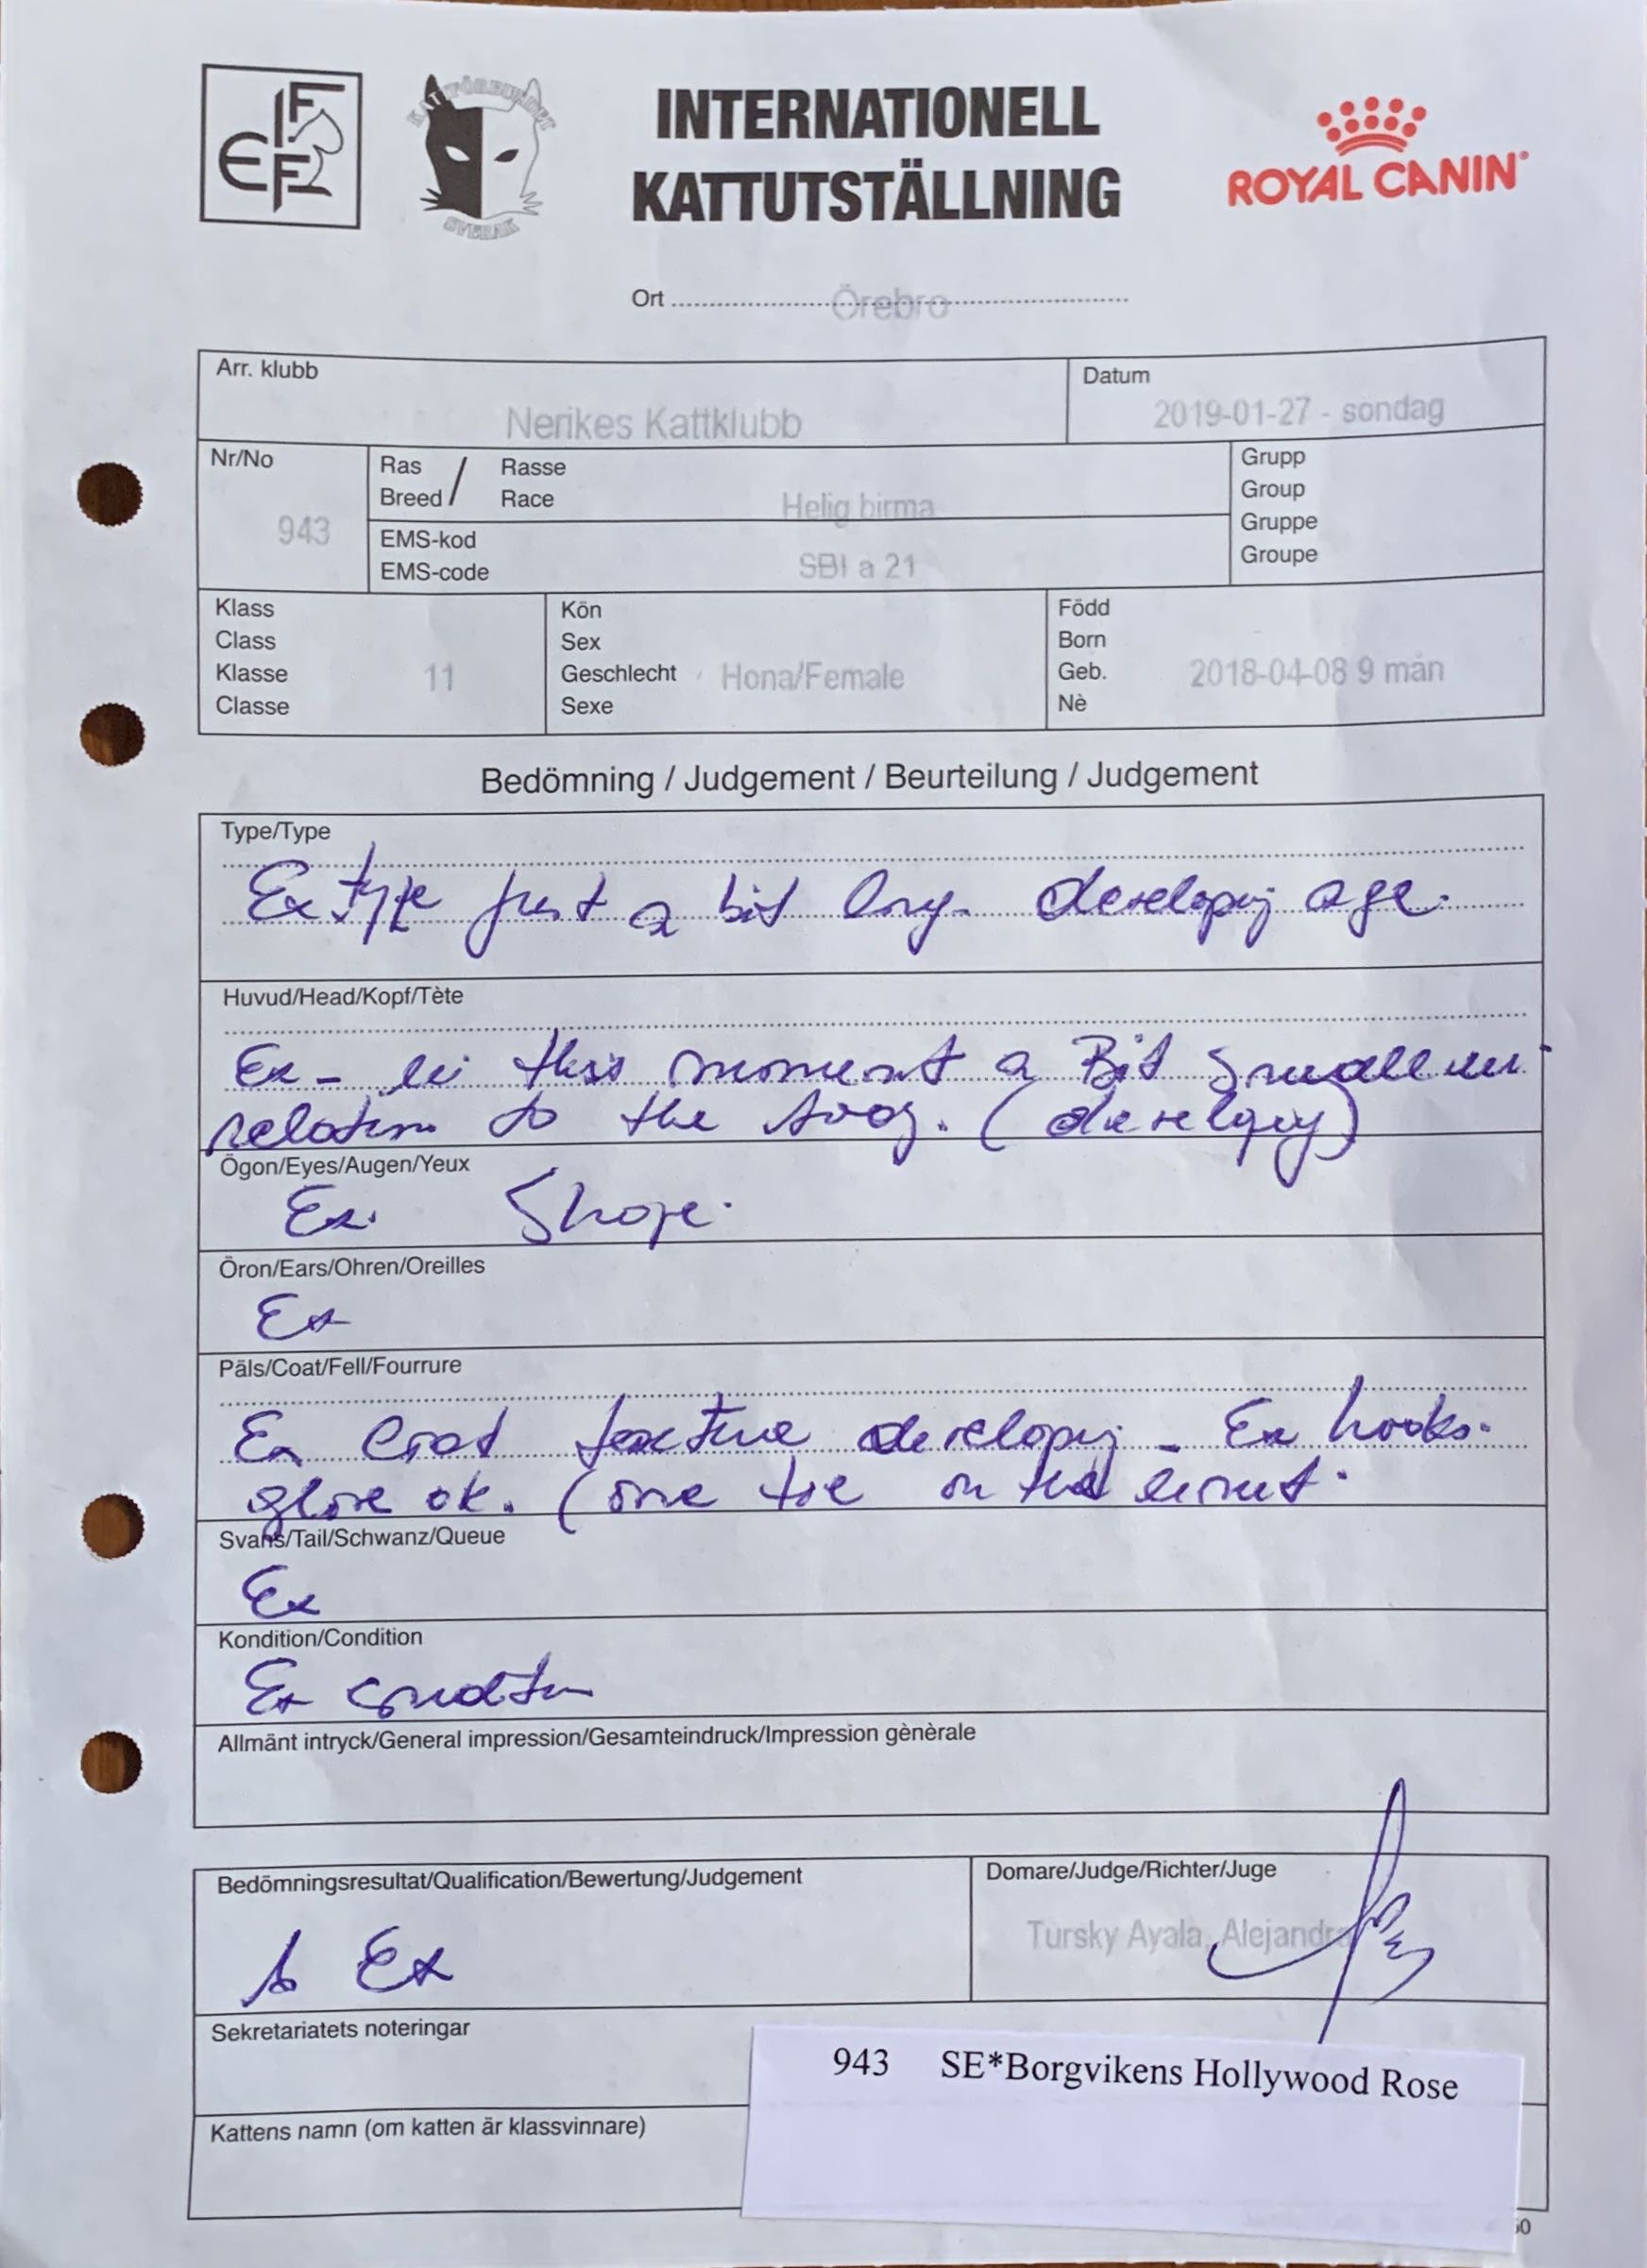 FIFe
KATTFÖRBUNDET
SVERAK
INTERNATIONELL
KATTUTSTÄLLNING
ROYAL CANIN®
Ort Örebro
Arr. klubb
Nerikes Kattklubb
Datum
2019-01-27 - sondag
Nr/No
943
Ras / Rasse
Breed / Race
Helig birma
EMS-kod
EMS-code
SBI a 21
Grupp
Group
Gruppe
Groupe
Klass
Class
Klasse
Classe
11
Kön
Sex
Geschlecht
Sexe
Hona/Female
Född
Born
Geb.
Nè
2018-04-08 9 mån
Bedömning / Judgement / Beurteilung / Judgement
Type/Type
Ex type just a bit long. developing age.
Huvud/Head/Kopf/Tète
Ex - in this moment a Bit small in
relation to the body. (developing)
Ögon/Eyes/Augen/Yeux
Ex. Shape.
Öron/Ears/Ohren/Oreilles
Ex
Päls/Coat/Fell/Fourrure
Ex Coat texture developing - Ex hooks.
glove ok. (one toe on the limit.
Svans/Tail/Schwanz/Queue
Ex
Kondition/Condition
Ex condition
Allmänt intryck/General impression/Gesamteindruck/Impression gènèrale
Bedömningsresultat/Qualification/Bewertung/Judgement
Ex
Domare/Judge/Richter/Juge
Tursky Ayala, Alejandra
Sekretariatets noteringar
943 SE*Borgvikens Hollywood Rose
Kattens namn (om katten är klassvinnare)